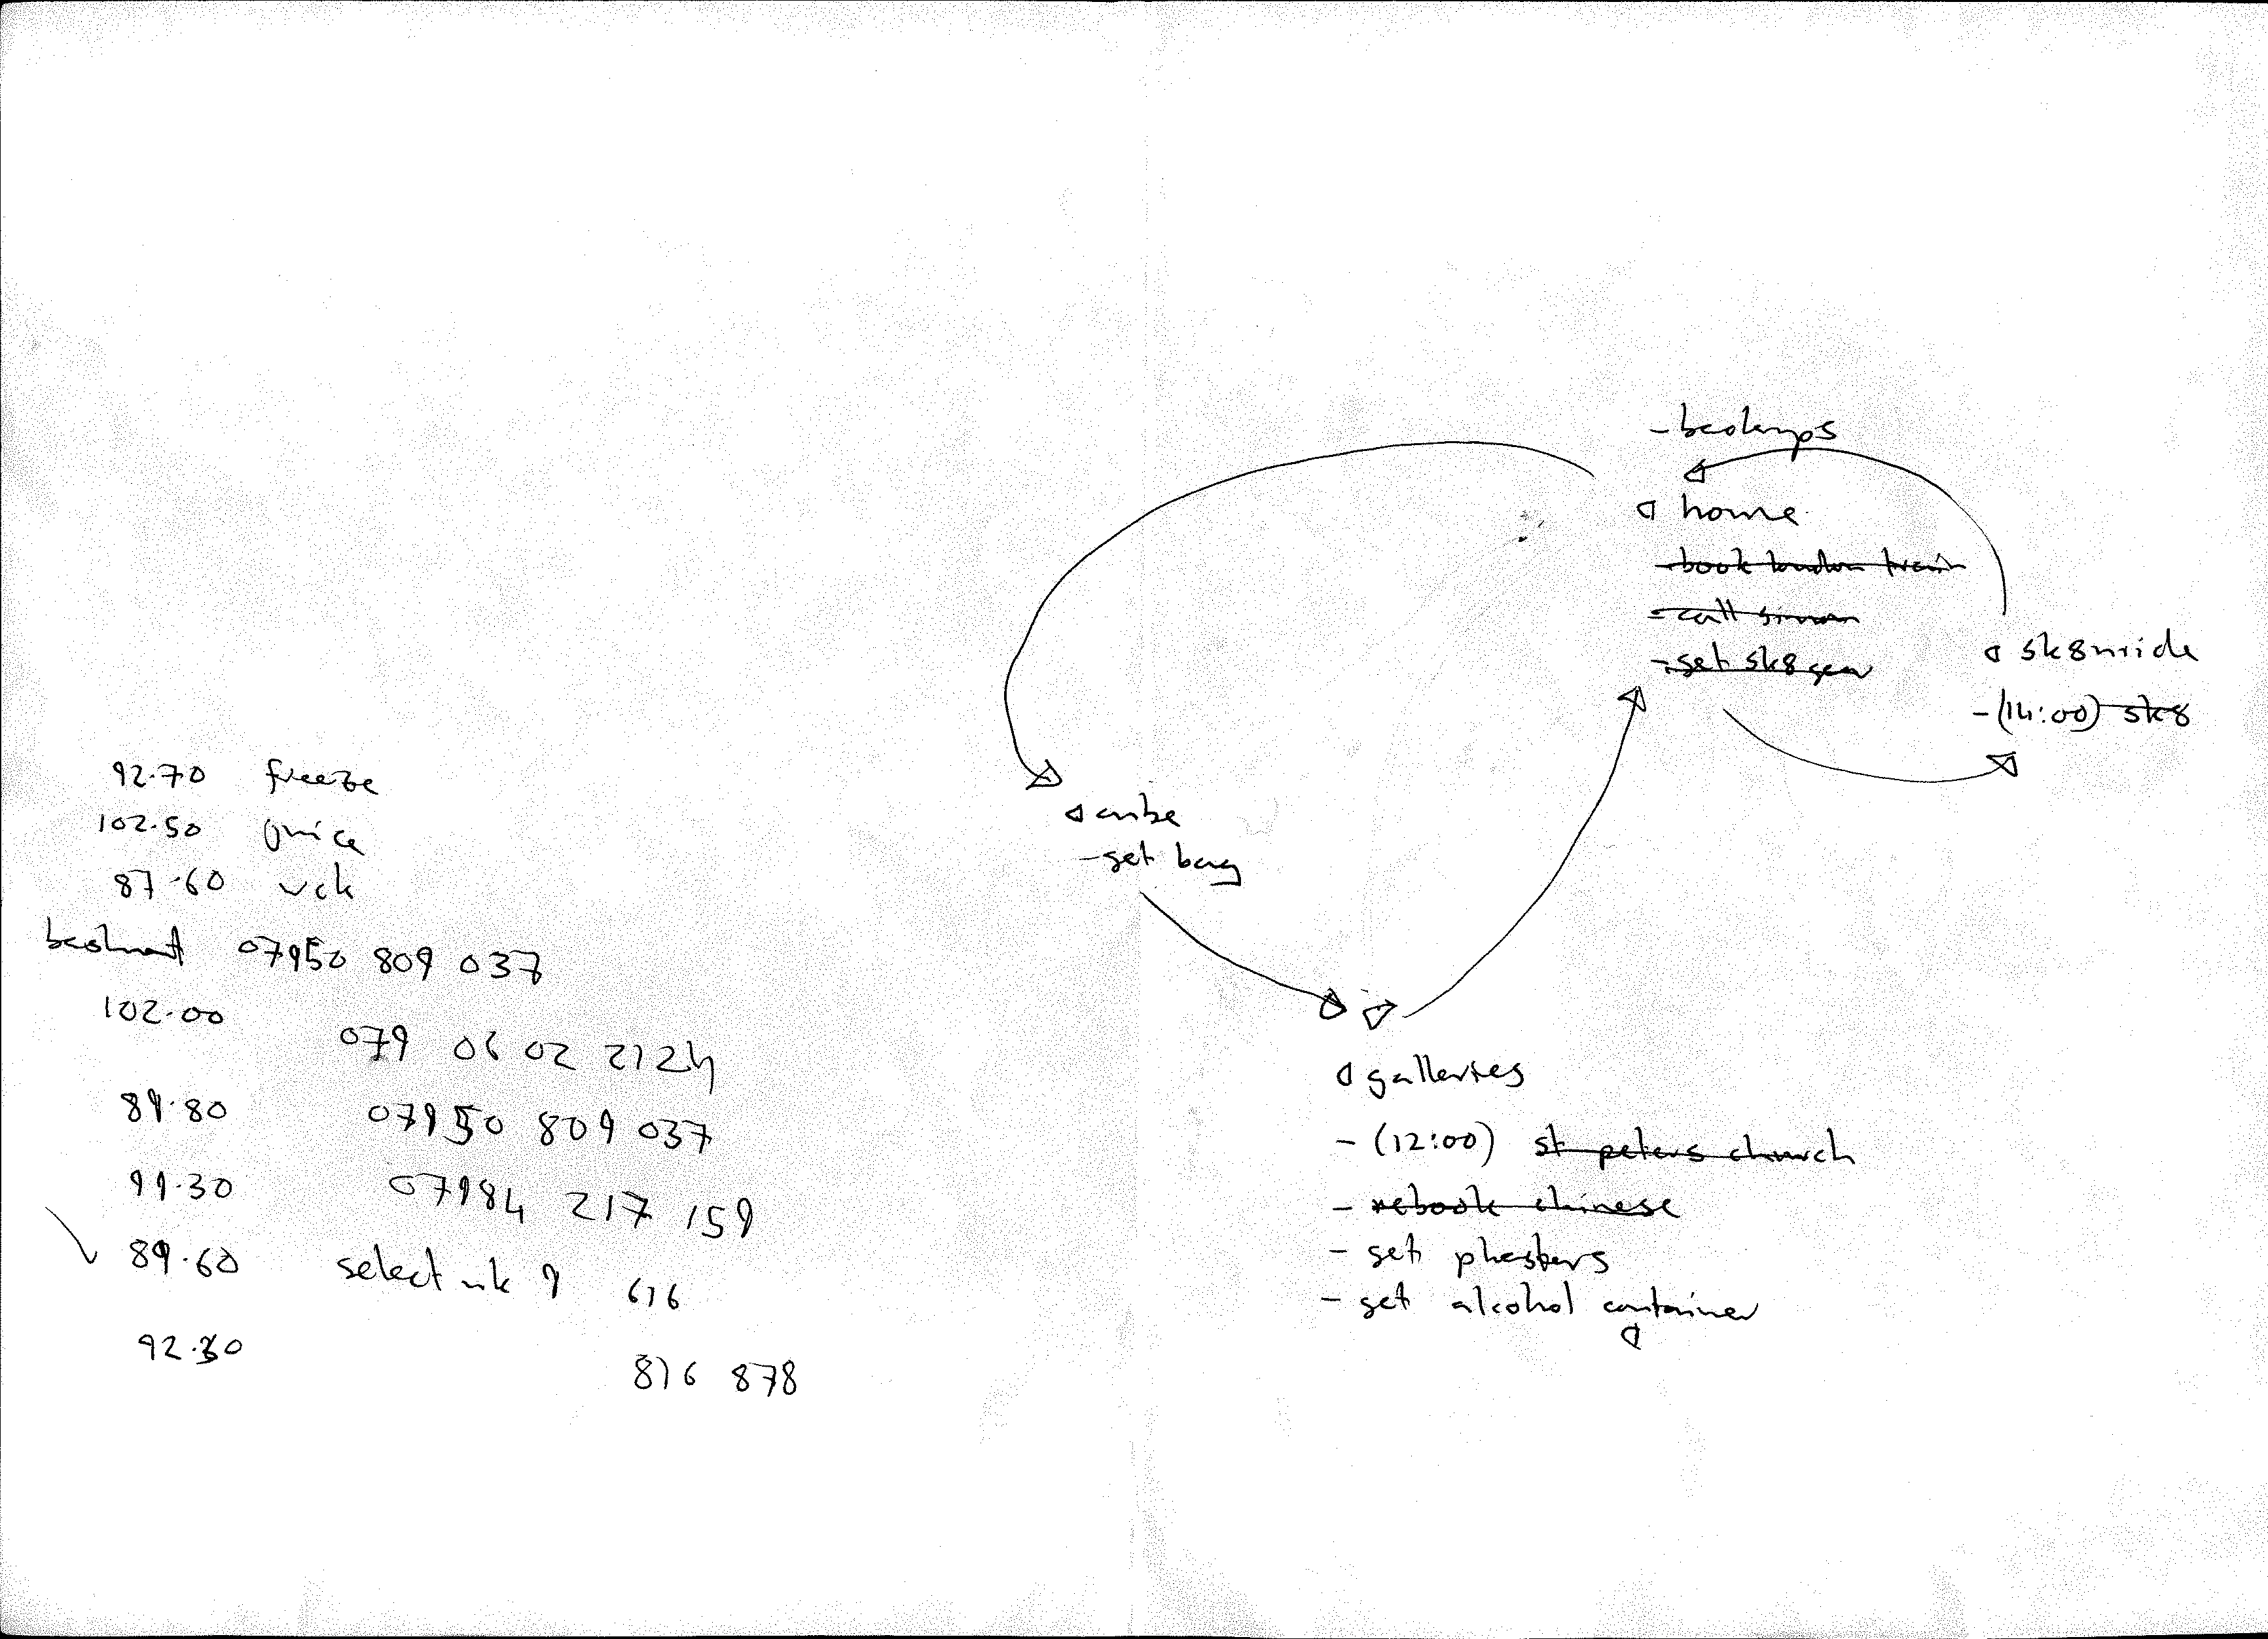 92.70 freeze
102.50 juice
87.60 vck
07950 809 037
102.00
079 06 02 2124
89.80 07950 809 037
99.30 07984 217 159
89.60 select uk 9 616
92.30
816 878
home
- book london train
- call simon
- get sk8 gear
sk8nride
- (14:00) sk8
cube
- get bag
galleries
- (12:00) st peters church
- rebook chinese
- get
- get alcohol container